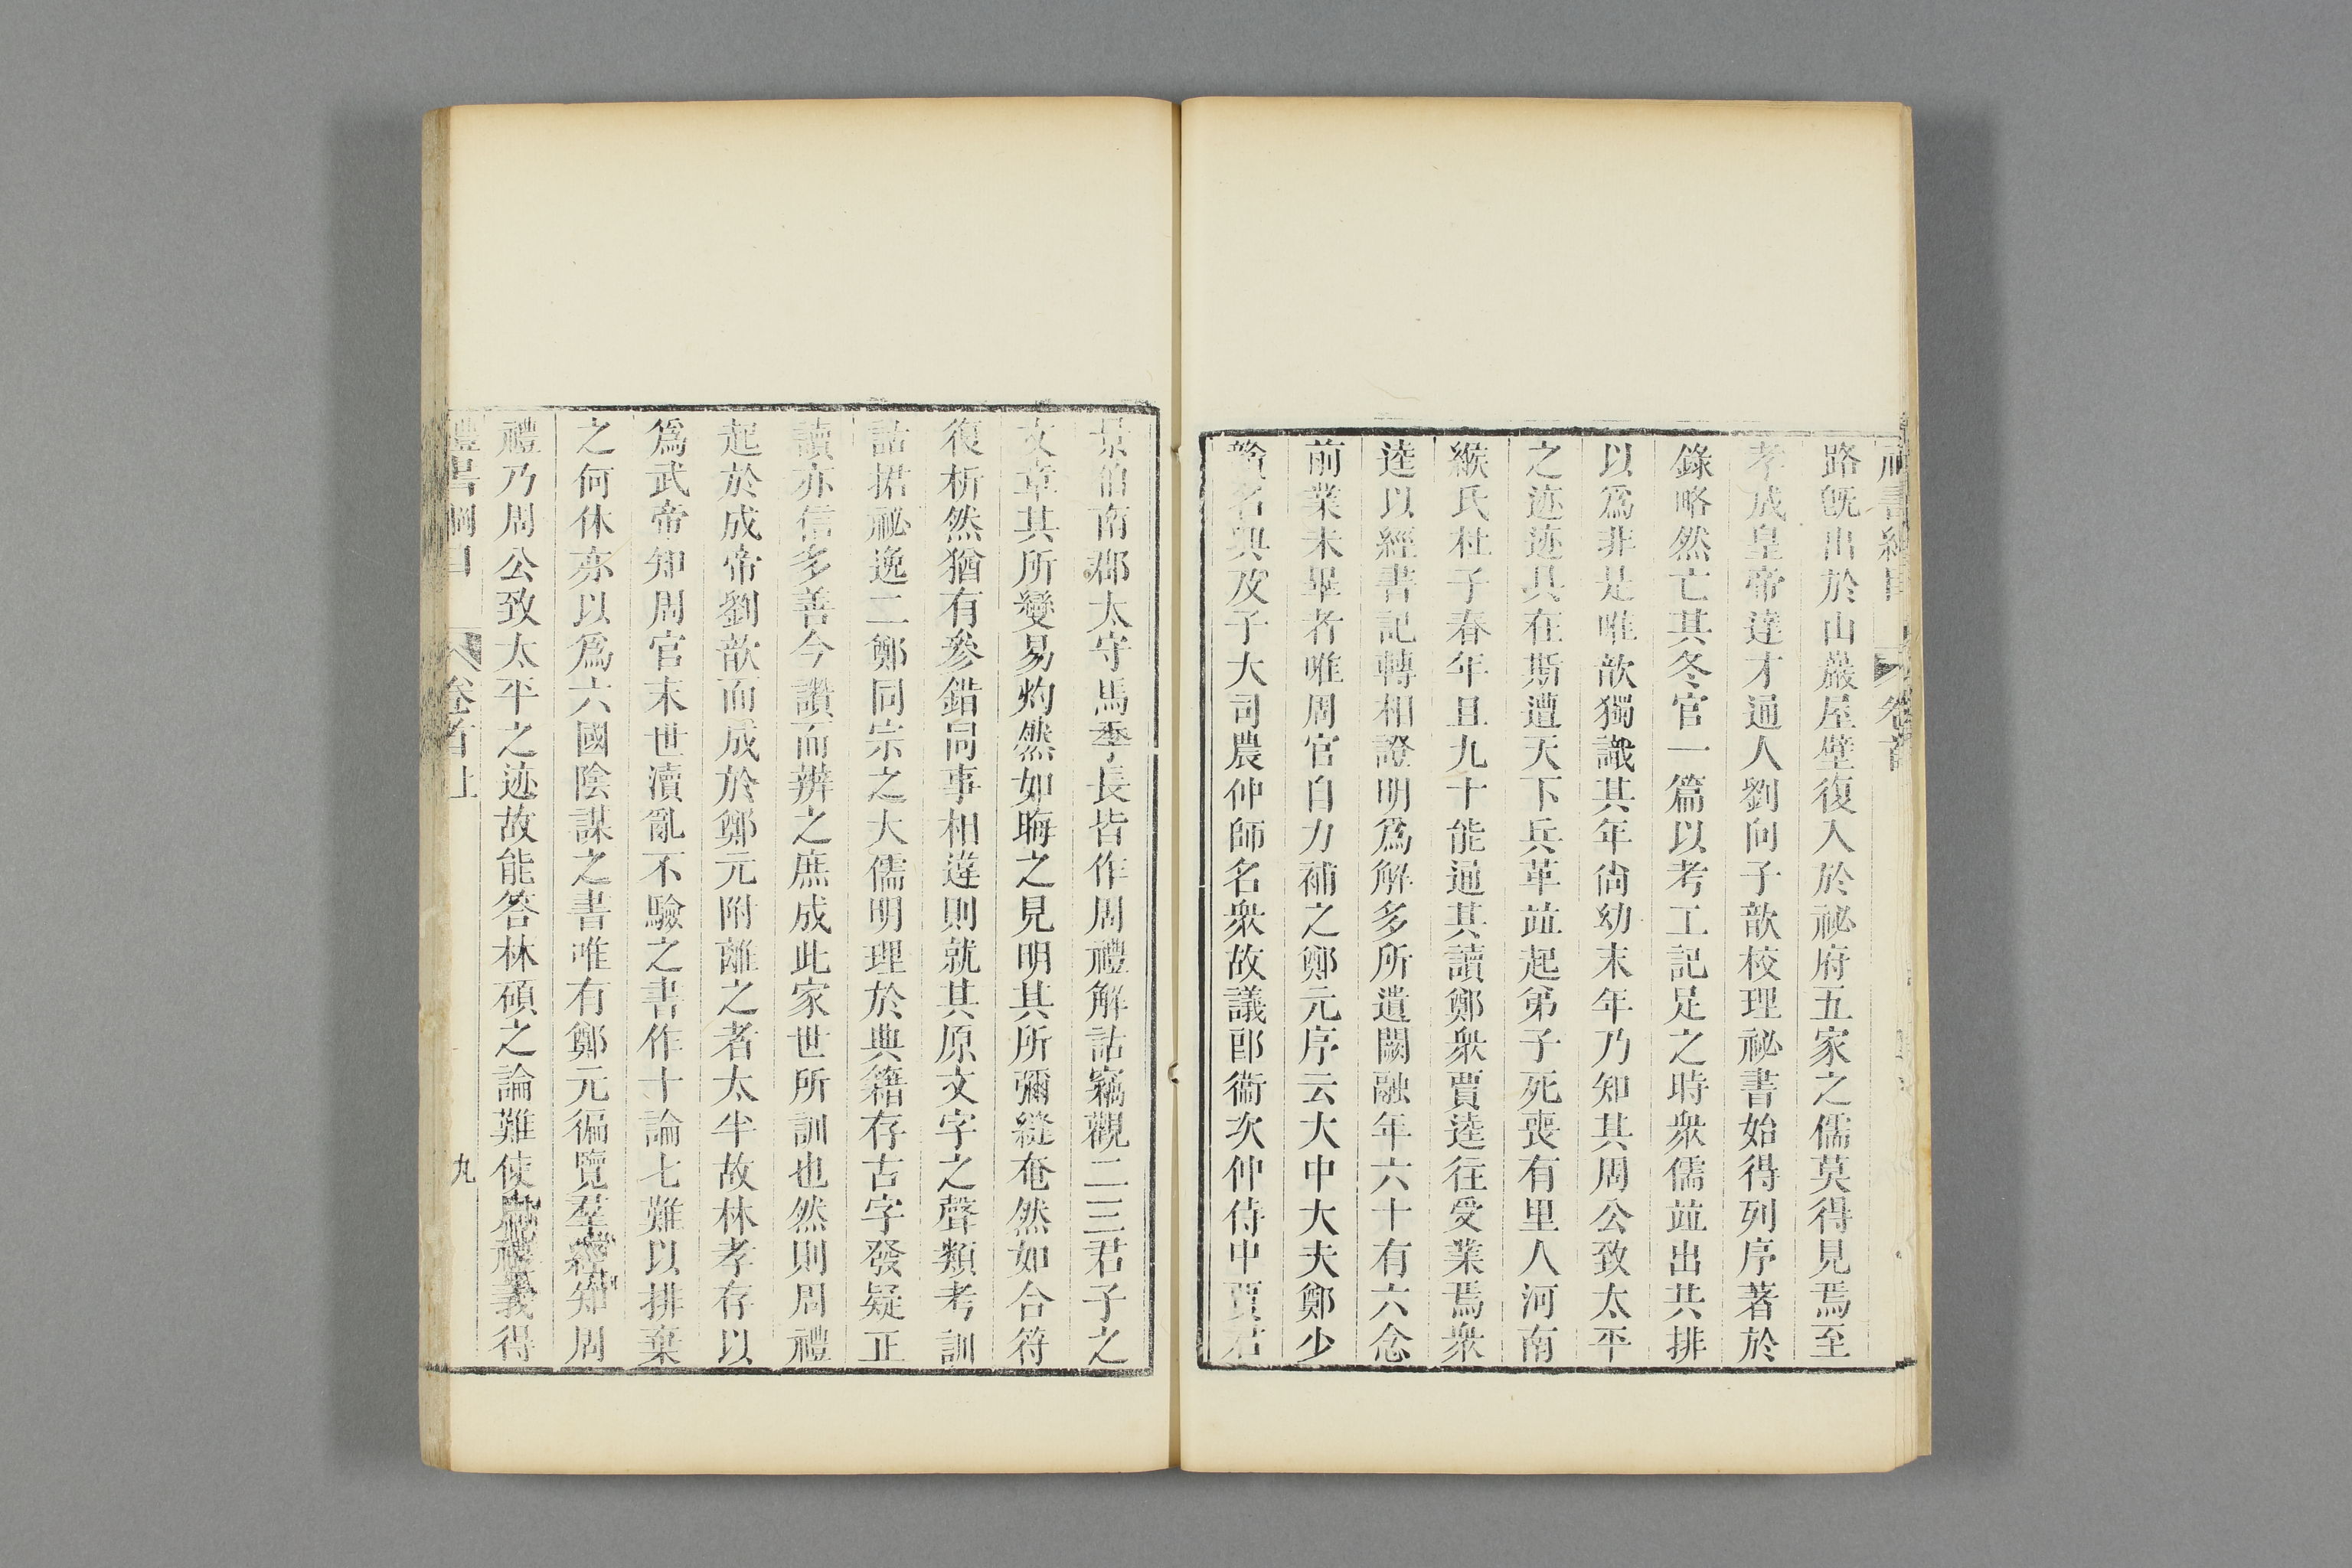 禮書綱目 卷首
路旣出於山巖屋壁復入於祕府五家之儒莫得見焉至
孝成皇帝達才通人劉向子歆校理祕書始得列序著於
錄略然亡其冬官一篇以考工記足之時衆儒竝出共排
以爲非是唯歆獨識其年尙幼末年乃知其周公致太平
之迹迹具在斯遭天下兵革竝起弟子死喪有里人河南
緱氏杜子春年且九十能通其讀鄭衆賈逵往受業焉衆
逵以經書記轉相證明爲解多所遺闕融年六十有六念
前業未畢者唯周官自力補之鄭元序云大中大夫鄭少
贛名興及子大司農仲師名衆故議郞衞次仲侍中賈君
景伯南郡太守馬季長皆作周禮解詁竊觀二三君子之
文章其所變易灼然如晦之見明其所彌縫奄然如合符
復析然猶有參錯同事相違則就其原文字之聲類考訓
詁捃祕逸二鄭同宗之大儒明理於典籍存古字發疑正
讀亦信多善今讚而辨之庶成此家世所訓也然則周禮
起於成帝劉歆而成於鄭元附離之者太半故林孝存以
爲武帝知周官末世瀆亂不驗之書作十論七難以排棄
之何休亦以爲六國陰謀之書唯有鄭元徧覽羣經知周
禮乃周公致太平之迹故能答林碩之論難使周禮義得
禮書綱目 卷首上 九